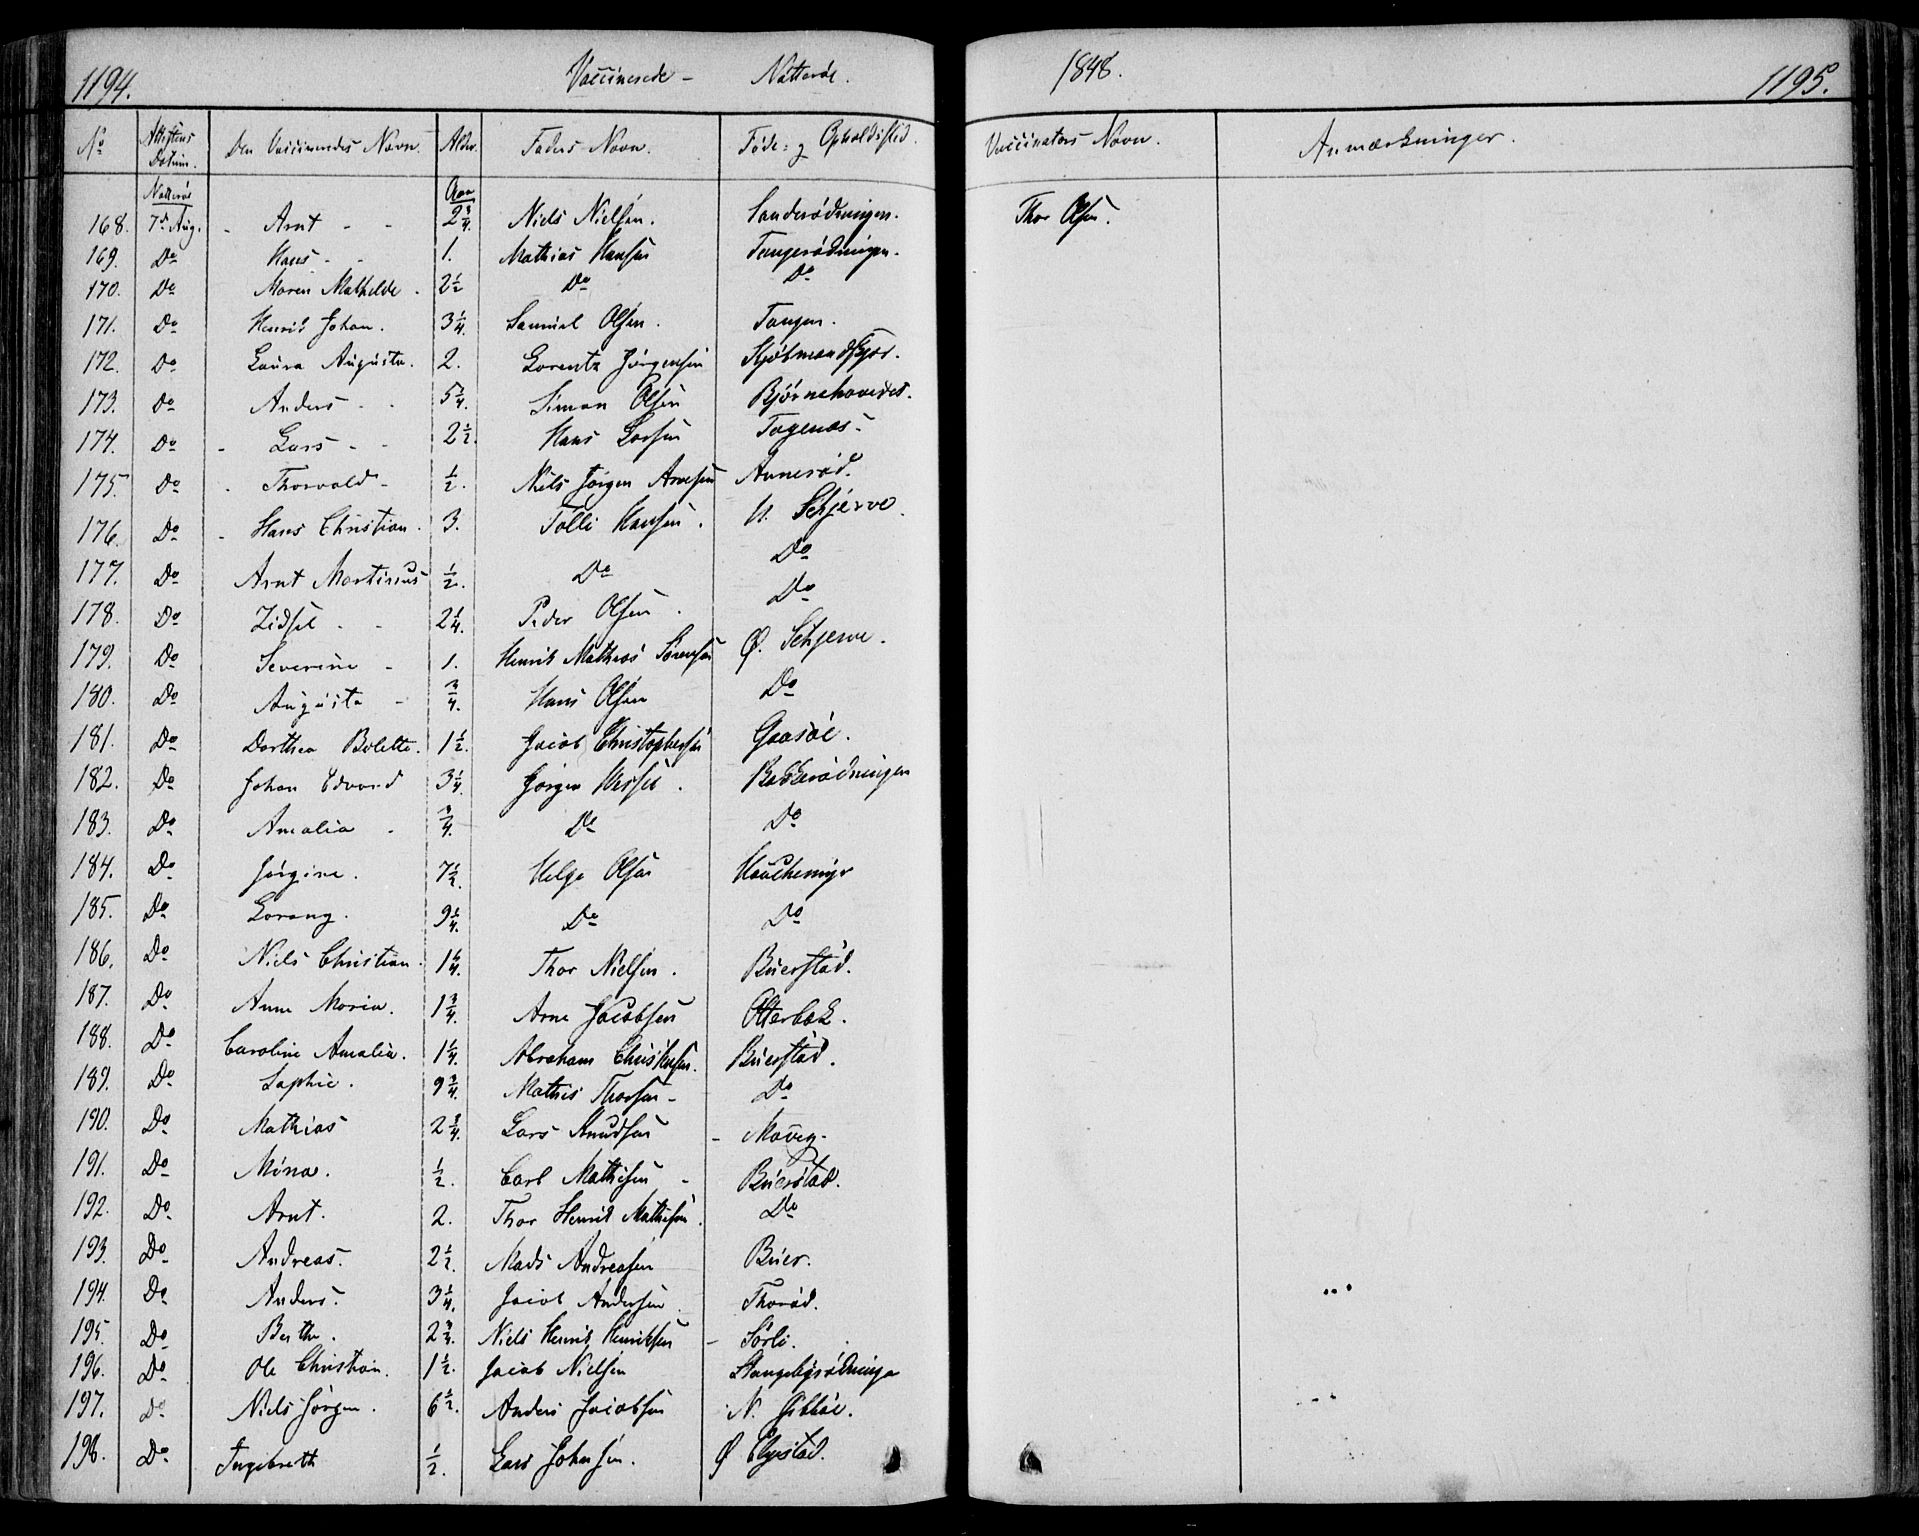 1194. Vaccinerede - Nøtterøe. 1848. 1195.
No Attestens Datum. Den Vaccineredes Navn. Alder. Faders Navn. Føde- og Opholdssted. Vaccinators Navn. Anmærkninger.
Nøtterøe Aar
168. 7de Aug. - Arnt - - 2 3/4. Niels Nielsen. Sanderødningen. Thor Olsen.
169. Do Hans - - 1. Mathias Hansen Tangerødningen.
170. Do Maren Mathilde. 2 1/2 Do Do
171. Do Henrik Johan. 3 1/4. Samuel Olsen. Tangen.
172. Do Laura Augusta. 2. Lorentz Jørgensen
173. Do Anders - - 5 3/4. Simon Olsen Bjørnehovedet.
174. Do - Lars - - 2 1/2. Hans Larsen Tagenæs -
175. Do - Thorvald - 1/2. Niels Jørgen Arnesen Annerød.
176. Do - Hans Christian. 3. Tolli Hansen. N. Schjerve.
177. Do Arnt Martinius 1/2. Do Do
178. Do Zidsel - - 2 1/4. Peder Olsen. Do
179. Do Severine - 1. Henrik Mathias Sørensen Ø. Schjerve.
180. Do Augusta - 3/4. Hans Olsen Do
181. Do Dorthea Bolette. 1 1/2. Jacob Christophersen Gaasøe.
182. Do Johan Edvard 3 1/4. Jørgen Hessel. Bakkerødningen
183. Do Amalia - 3/4. Do Do
184. Do Jørgine. 7 1/2. Helge Olsen Houchemyr
185. Do Lorang. 9 1/4. Do Do
186. Do Niels Christian. 1 1/4. Thor Nielsen. Buerstad.
187. Do Anne Maria. 1 3/4. Arne Jacobsen Otterbek.
188. Do Caroline Amalia. 1 1/4. Abraham Christensen. Buerstad.
189. Do Sophie. 9 3/4. Mathis Thorsen - Do
190. Do Mathias 2 3/4. Lars Knudsen - Moueg.
191. Do Mina. 1/2. Carl Mathisen - Buerstad.
192. Do Arnt. 2. Thor Henrik Mathisen. Do
193. Do Andreas. 2 1/2. Mads Andreasen Buer.
194. Do Anders. 3 1/4. Jacob Andersen. Thorød.
195. Do Berthe. 2 3/4. Niels Henrik Henriksen - Sørli.
196. Do Ole Christian. 1 1/2. Jacob Nielsen Stangebyrødningen
197. Do Niels Jørgen. 6 1/2. Anders Jacobsen N. Gibbøe.
198. Do Ingebreth 1/2. Lars Johnsen. Ø Elgestad.